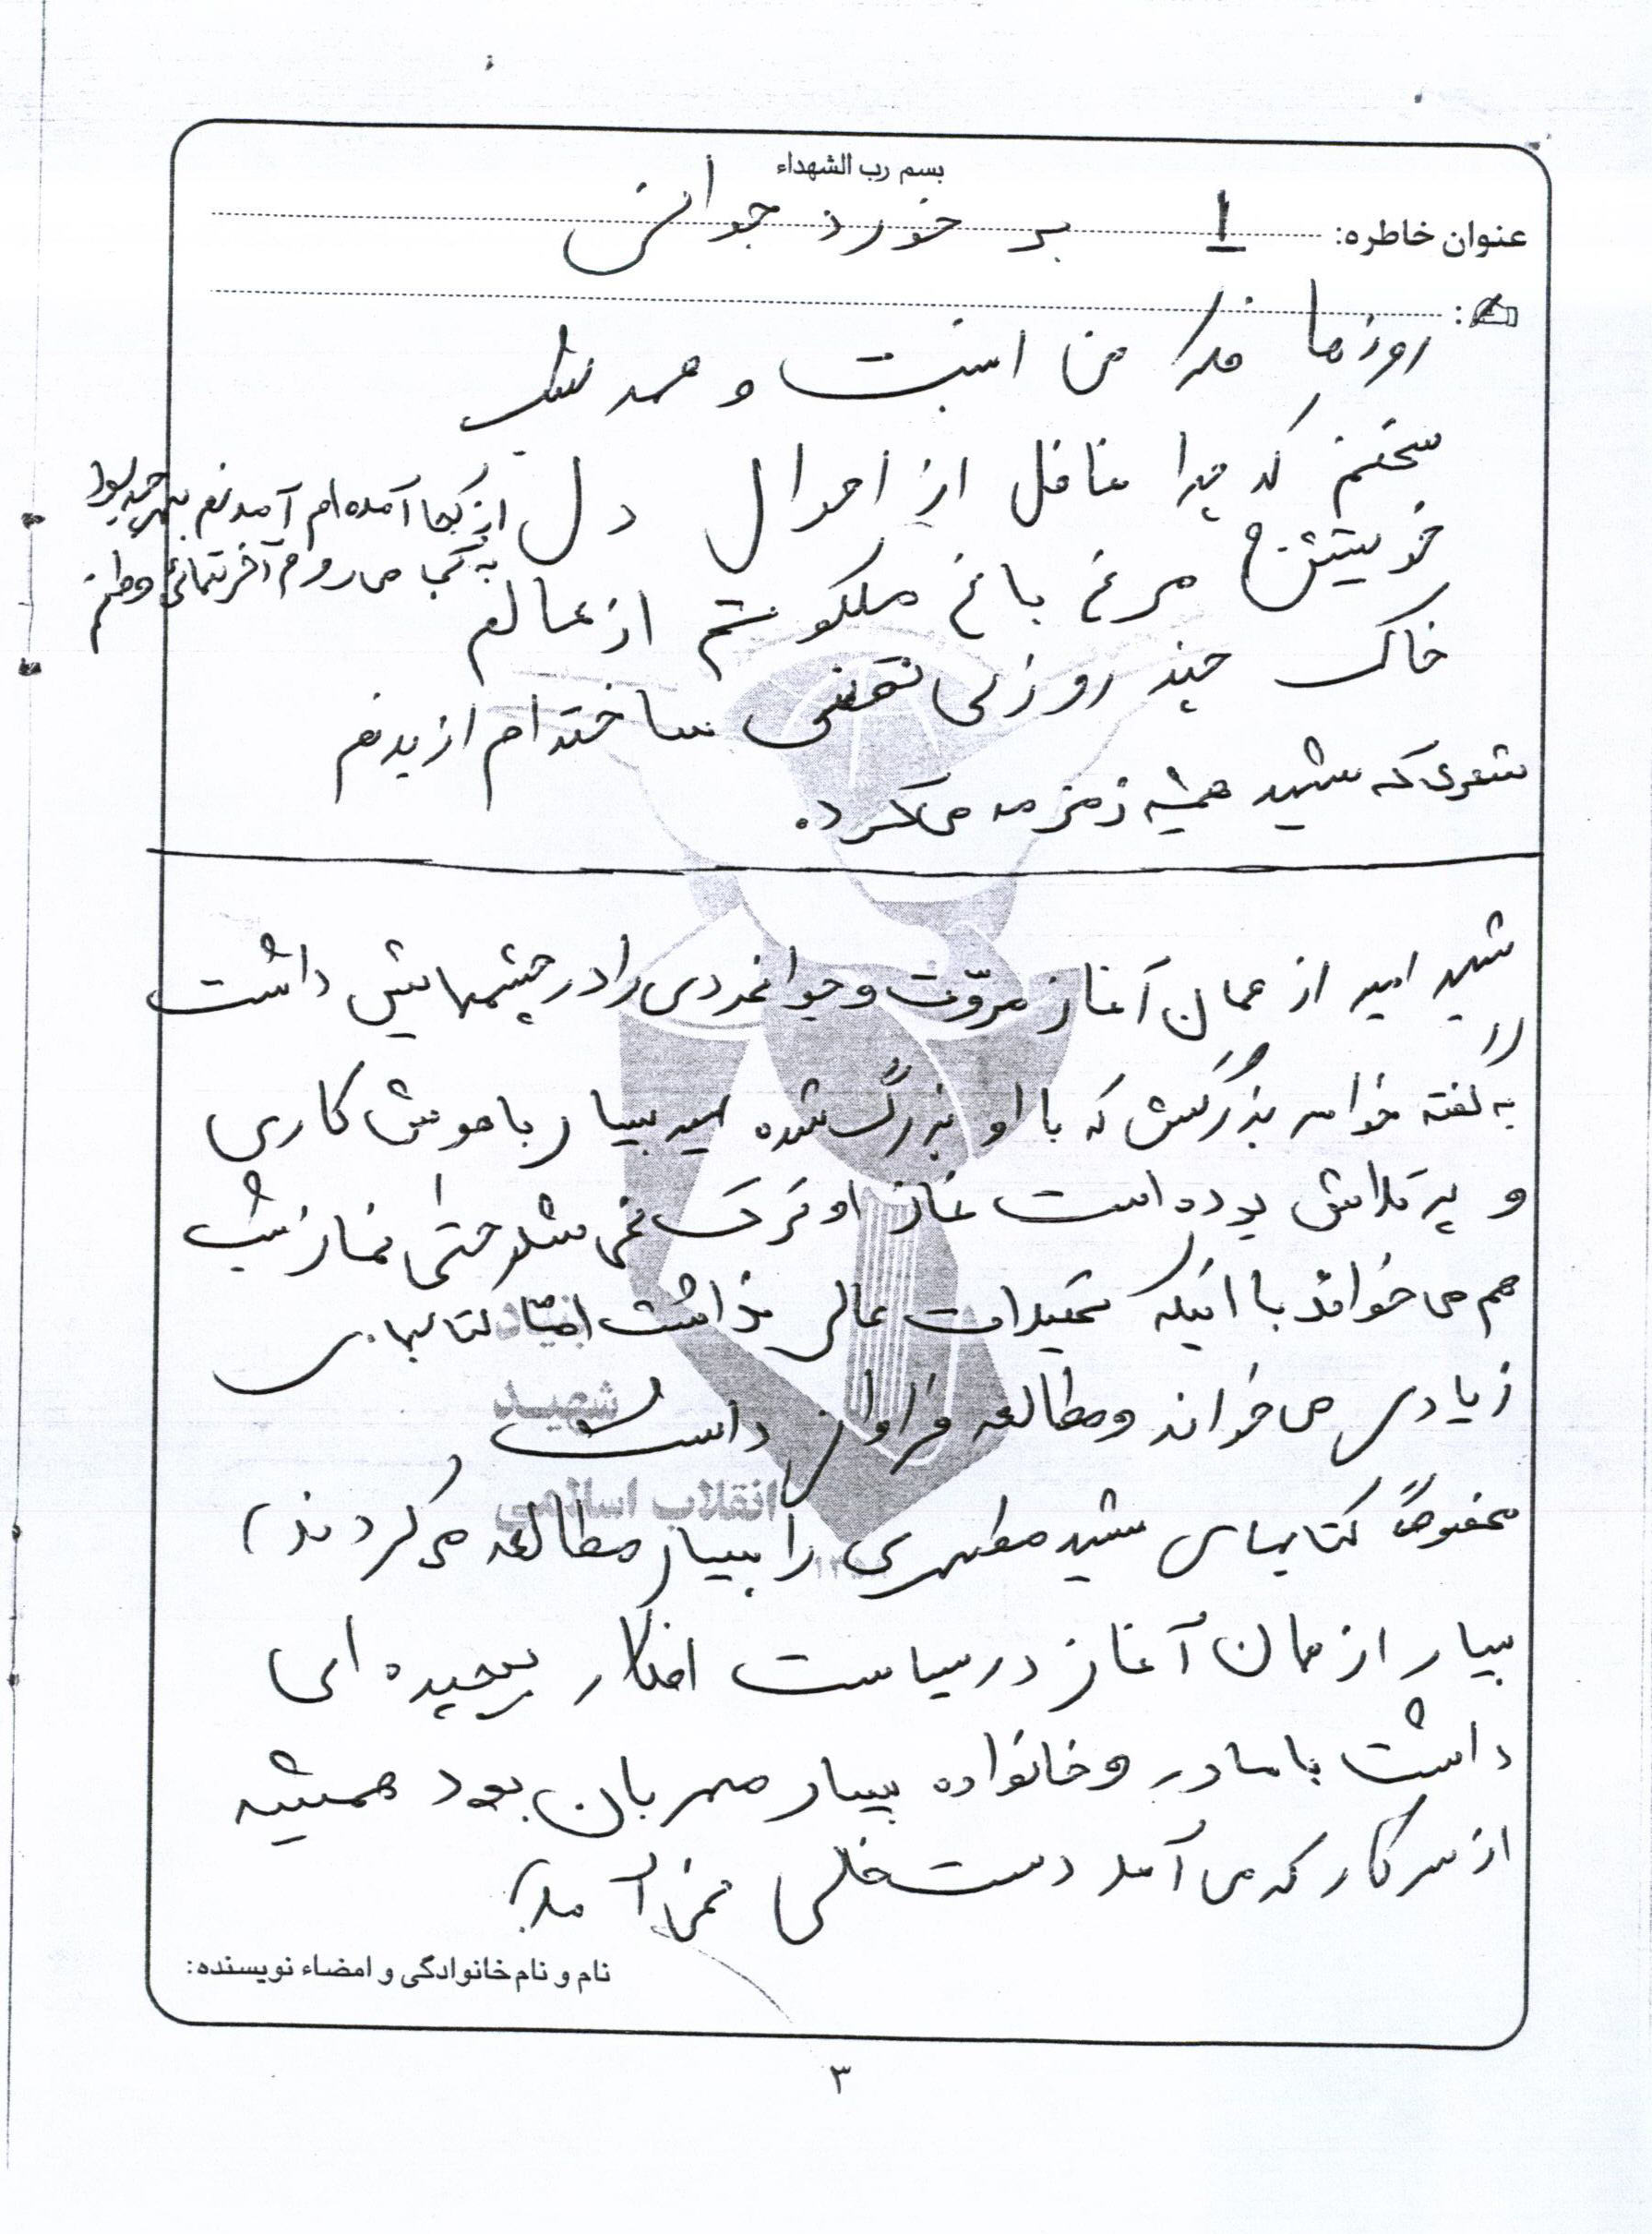 بسم رب الشهداء
عنوان خاطره: 1 بر خورد جوانی
روزها فکر من اینست و همه شب
سخنم که چرا غافل از احوال دل
خویشتنم مرغ باغ ملکوتم از عالم
خاک چند روزی قفسی ساخته ام از بدنم
از کجا آمده ام آمدنم بهر چه بود
به کجا می روم آخر ننمائی وطنم
شعری که شهید همیشه زمزمه می کرد.
شهید امید از همان آغاز مروّت و جوانمردی را در چشمهایش داشت
به گفته خواهر بزرگش که با او بزرگ شده امید بسیار باهوش کاری
و پر تلاش بوده است نماز او ترک نمی شد حتی نماز شب
هم می خواند با اینکه تحصیلات عالی نداشت امّا کتابهای
زیادی می خواند و مطالعه فراوان داشت
مخصوصاً کتابهای شهید مطهری را بسیار مطالعه می کردند)
بسیار از همان آغاز در سیاست افکار پیچیده ای
داشت با مادر و خانواده بسیار مهربان بود همیشه
از سر کار که می آمد دست خالی نمی آمد
نام و نام خانوادگی و امضاء نویسنده:
۳
بنیاد
شهید
انقلاب اسلامی